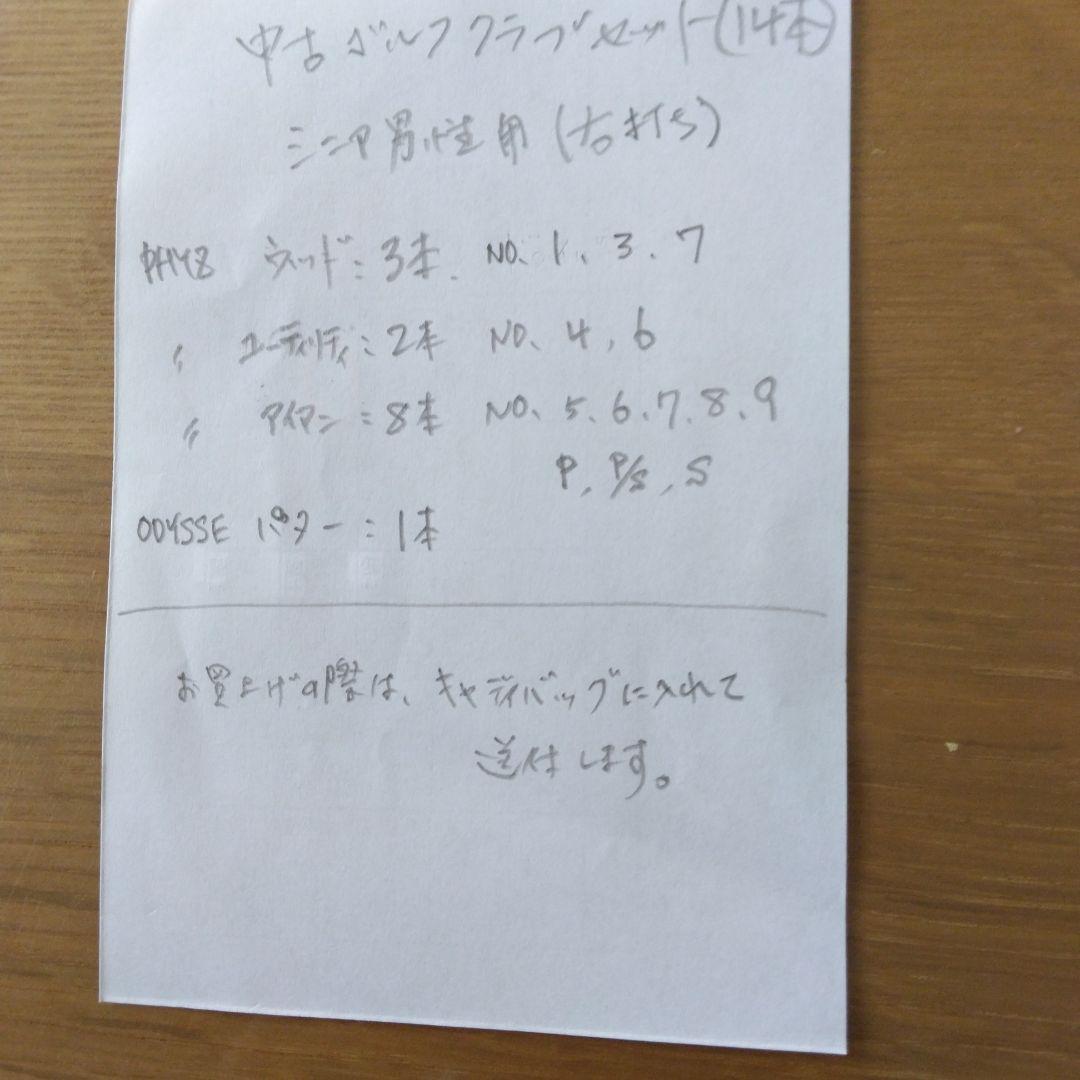 中古ゴルフクラブセット(14本)
シニア男性用(右打ち)
PHYZ ウッド:3本. NO、1、3、7
〃 ユーティリティ:2本 NO、4、6
〃 アイアン:8本 NO、5、6、7、8、9
P、P/S、S
ODYSSE パター:1本
お買上げの際は、キャディバッグに入れて
送付します。